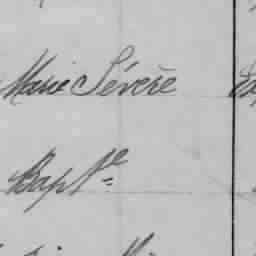 Marie Sévère
Bapte